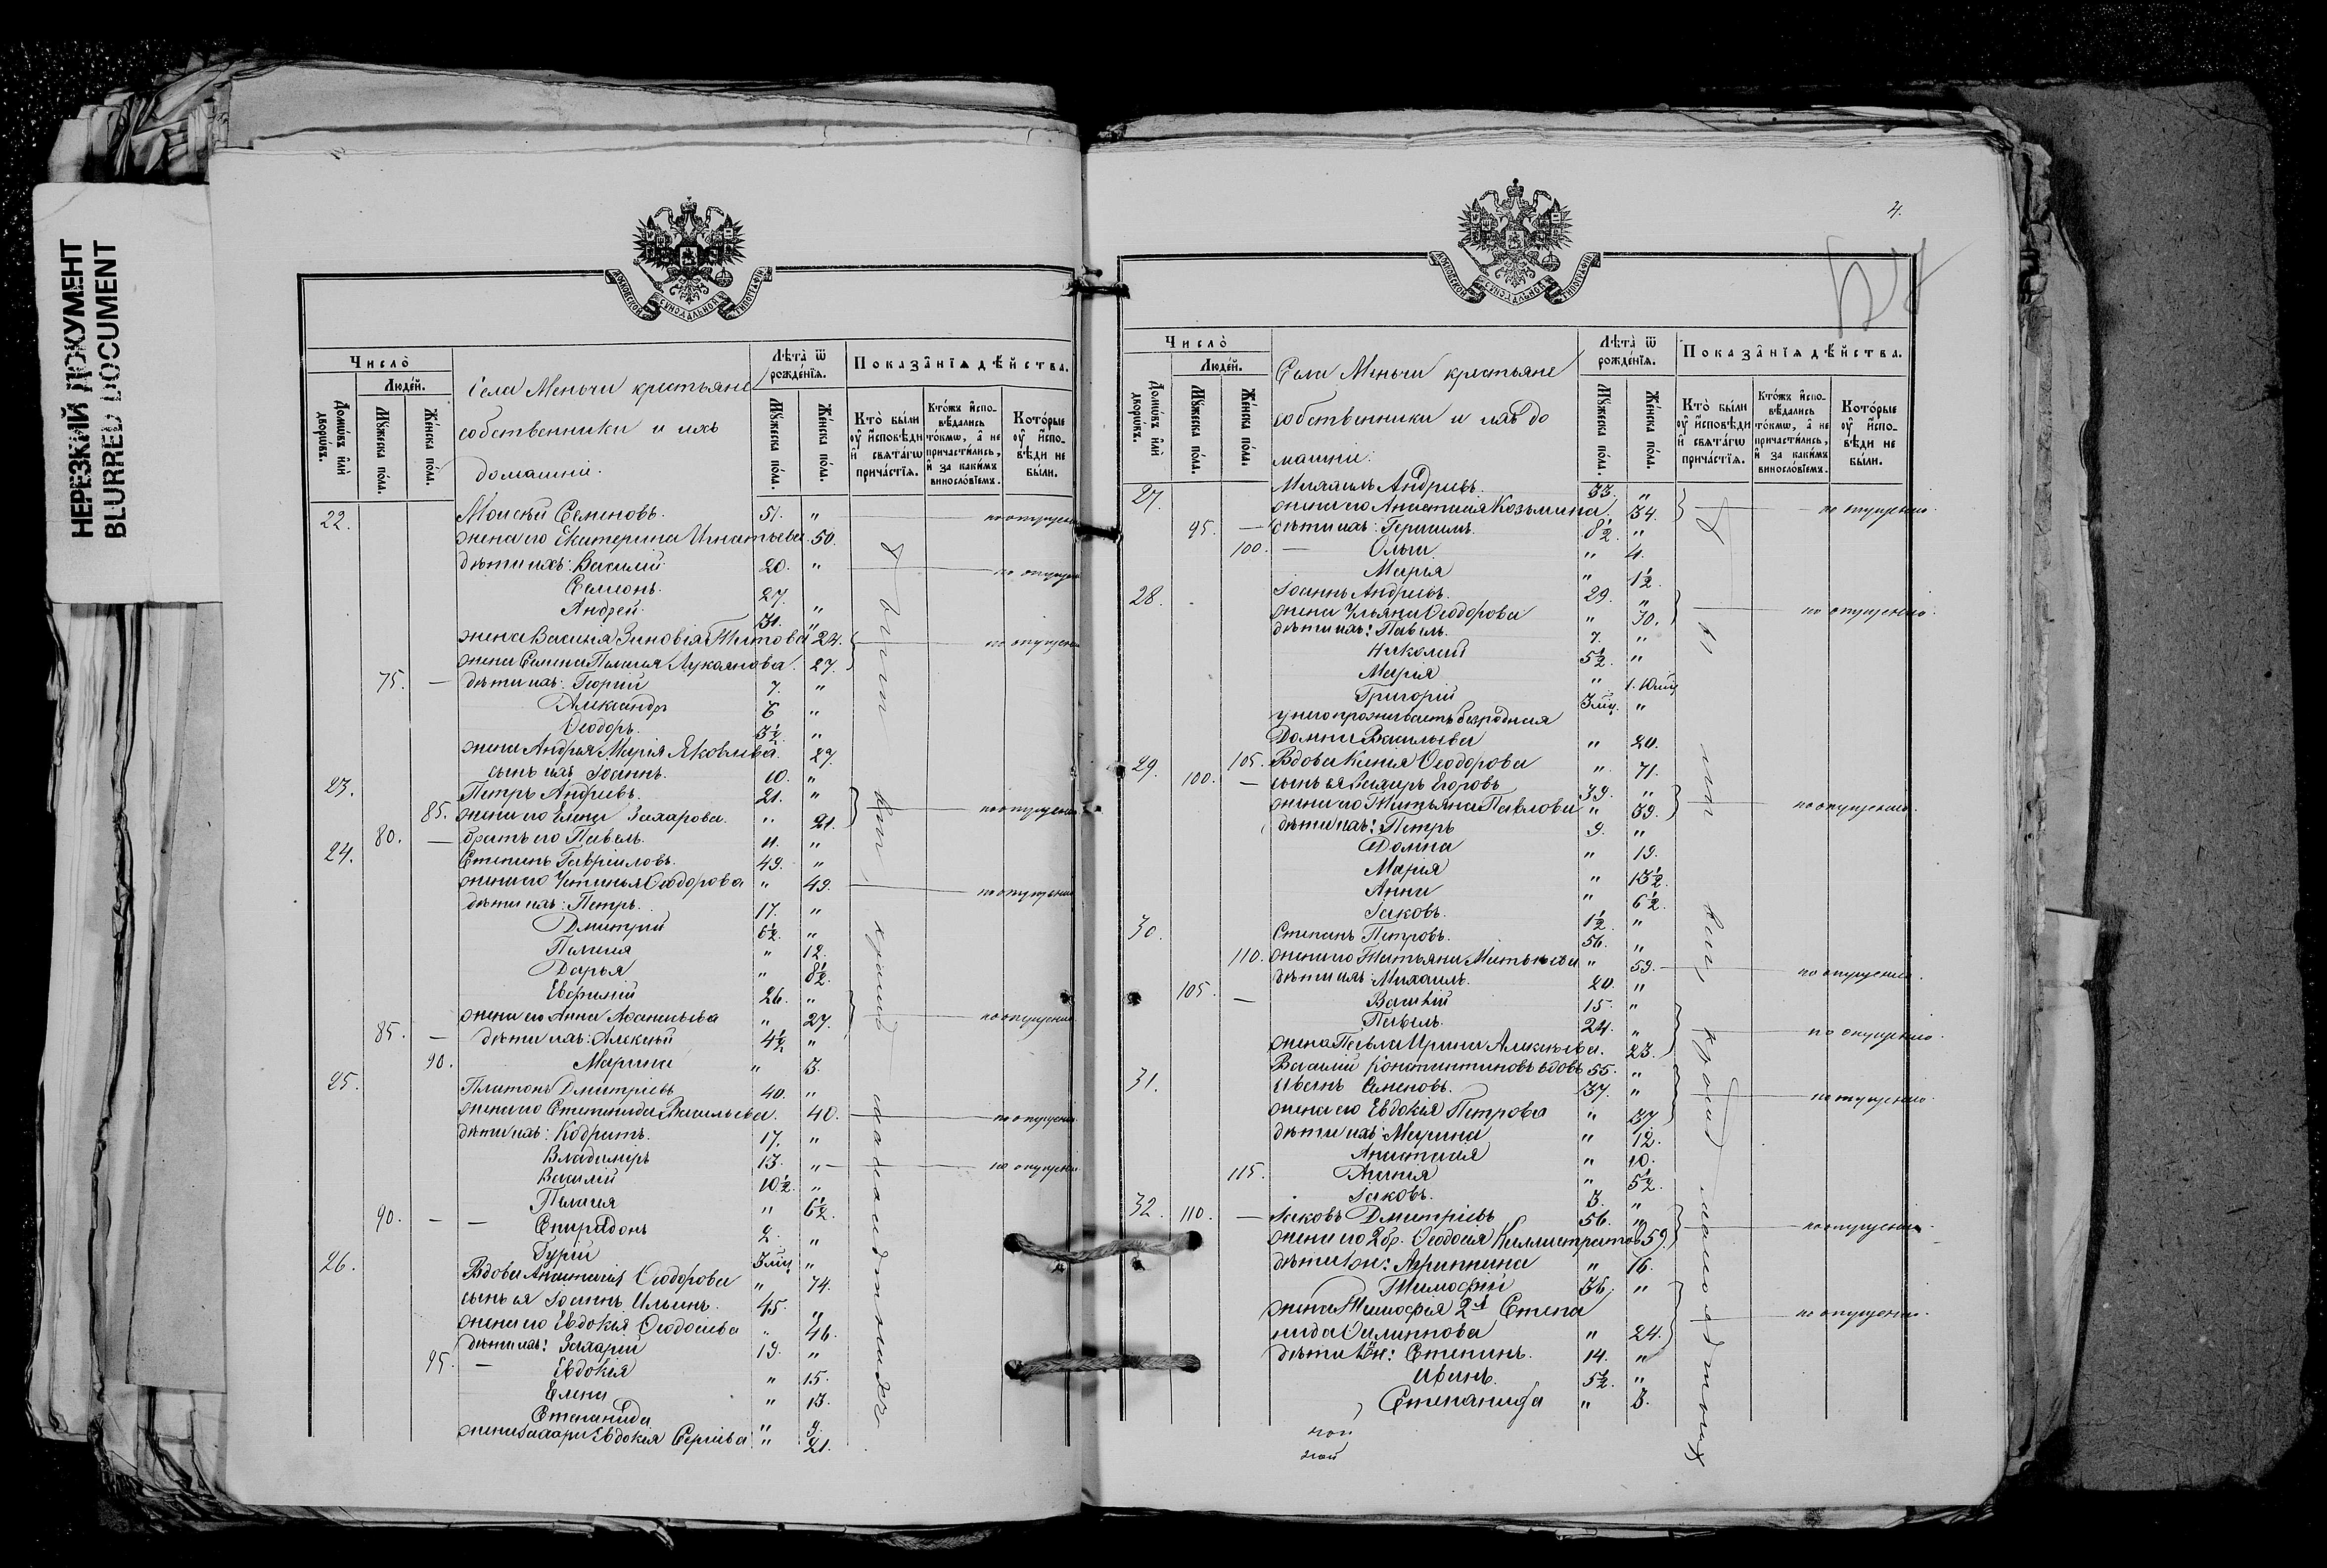 НЕРЕЗКИЙ ДОКУМЕНТ
BLURRED DOCUMENT
МОСКОВСКОЙ СѴНОДАЛЬНОЙ ТИПОГРАФІИ
Число̀
Люде́й.
Домѡ́въ и҆лѝ дворѡ́въ.
Мꙋ́жеска по́ла.
Же́нска по́ла.
Села Меньчи крестьяне
собственники и ихъ
домашніи.
Лѣ́та ѿ рожде́нїѧ.
Мꙋ́жеска по́ла.
Же́нска по́ла.
Показа̂нїѧ дѣ́йства.
Кто̀ бы́ли ᲂу҆ и҆́сповѣди и҆ свѧта́гѡ прича́стїѧ.
Кто́жъ и҆спо-вѣ́дались то́кмѡ, а҆ не причасти́лись, и҆ за каки́мъ винословїемъ.
Кото́рые ᲂу҆ и҆спо-вѣди не бы́ли.
22. Моисей Семеновъ. 51. "
по опущенію
жена его Екатерина Игнатьева. 50.
дѣти ихъ: Василій 20. "
по опущенію
Семіонъ. 27. "
Андрей. 31. "
жена Василія Зиновія Титова 24.
по опущенію
жена Семіона Пелагія Лукоянова. 27.
75. — дѣти ихъ: Георгій 7. "
Александръ 6 "
Ѳеодоръ. 3½ "
жена Андрея Марія Яковлева. 27.
сынъ ихъ Іоаннъ. 10. "
23. Петръ Андреевъ. 21. "
85. жена его Елена Захарова. " 21.
по опущенію
80. — братъ его Павелъ. 11. "
24. Степанъ Гавриловъ. 49. "
жена его Устинья Ѳеодорова " 49.
по опущенію
дѣти ихъ: Петръ. 17. "
Дмитрій 6½. "
Пелагія " 12.
Дарья " 8½.
Евфимій 26. "
жена его Анна Аѳанасьева " 27.
по опущенію
85. — дѣти ихъ: Алексій 4½ "
90. Марина " 3.
25. Платонъ Дмитріевъ 40. "
жена его Степанида Васильева. 40.
по опущенію
дѣти ихъ: Кодратъ. 17. "
Владимиръ 13. "
по опущенію
Василій 10½. "
Пелагія " 6½.
90. — — Спиридонъ 2. "
Гурій 3 мц. "
26. Вдова Анастасія Ѳеодорова " 74.
сынъ ея Іоаннъ Ильинъ. 45. "
жена его Евдокія Ѳеодосіева " 46.
дѣти ихъ: Захарій 19. "
95. — Евдокія " 15.
Елена " 13.
Степанида " 9.
жена Захарія Евдокія Сергіева " 21.
4.
МОСКОВСКОЙ СѴНОДАЛЬНОЙ ТИПОГРАФІИ
Число̀
Люде́й.
Домѡ́въ и҆лѝ дворѡ́въ.
Мꙋ́жеска по́ла.
Же́нска по́ла.
Села Меньчи крестьяне
собственники и ихъ до
машніи:
Лѣ́та ѿ рожде́нїѧ.
Мꙋ́жеска по́ла.
Же́нска по́ла.
Показа̂нїѧ дѣ́йства.
Кто̀ бы́ли ᲂу҆ и҆́сповѣди и҆ свѧта́гѡ прича́стїѧ.
Кто́жъ и҆спо-вѣ́дались то́кмѡ, а҆ не причасти́лись, и҆ за каки́мъ винословїемъ.
Кото́рые ᲂу҆ и҆спо-вѣди не бы́ли.
27. Михаилъ Андреевъ. 33. "
жена его Анастасія Козьмина. 34.
по опущенію.
95. — дѣти ихъ: Герасимъ. 8½ "
100. — Ольга. " 4.
Марья " 1½.
28. Іоаннъ Андреевъ. 29. "
жена Ульяна Ѳеодорова " 30.
по опущенію.
дѣти ихъ: Павелъ. 7. "
Николай 5½. "
Марія "
Григорій 3 мц. "
у него проживаетъ безродная
Домна Васильева " 20.
29. 105. Вдова Ксенія Ѳеодорова " 71.
100. — сынъ ея Егоровъ 39. "
жена его Татьяна Павлова " 39.
по опущенію.
дѣти ихъ: Петръ 9. "
Домна " 19.
Марія " 13½.
Анна " 6½.
Іаковъ. 1½. "
30. Степанъ Петровъ. 56. "
110. жена его Татьяна Матвѣева " 59.
по опущенію.
дѣти ихъ: Михаилъ. 20. "
105. — Василій 15. "
Павелъ. 24. "
жена Павла Ирина Алексѣева. 23.
по опущенію.
Василій Константиновъ вдовъ 55. "
31. Иванъ Семеновъ. 37. "
по опущенію.
жена его Евдокія Петрова " 37.
дѣти ихъ: Марина " 12.
Анастасія " 10.
115. " 5½.
Іаковъ. 3. "
32. 110. — Іаковъ Дмитріевъ 56. "
по опущенію.
жена его 2 бр. Ѳеодосія Каллистратов 59.
дѣти : Агриппина " 16.
Тимоѳей 36. "
жена Тимоѳея 2я Степа
по опущенію.
нида Филиппова " 24.
дѣти : Степанъ. 14. "
Иванъ. 5½. "
Степанида " 3.